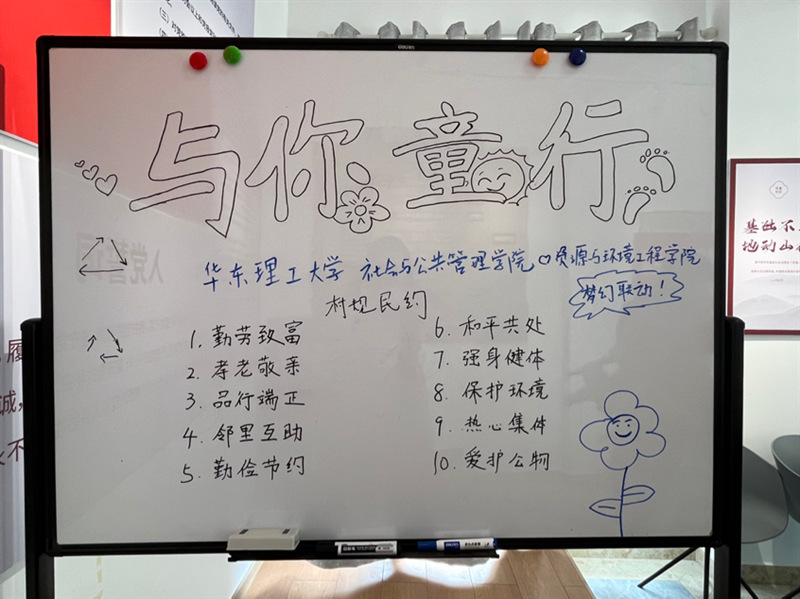 与你童行
华东理工大学 社会与公共管理学院 资源与环境工程学院
梦幻联动!
村规民约
1. 勤劳致富
2. 孝老敬亲
3. 品行端正
4. 邻里互助
5. 勤俭节约
6. 和平共处
7. 强身健体
8. 保护环境
9. 热心集体
10. 爱护公物
入党誓词
基础不
地动山
履
诚,
永不